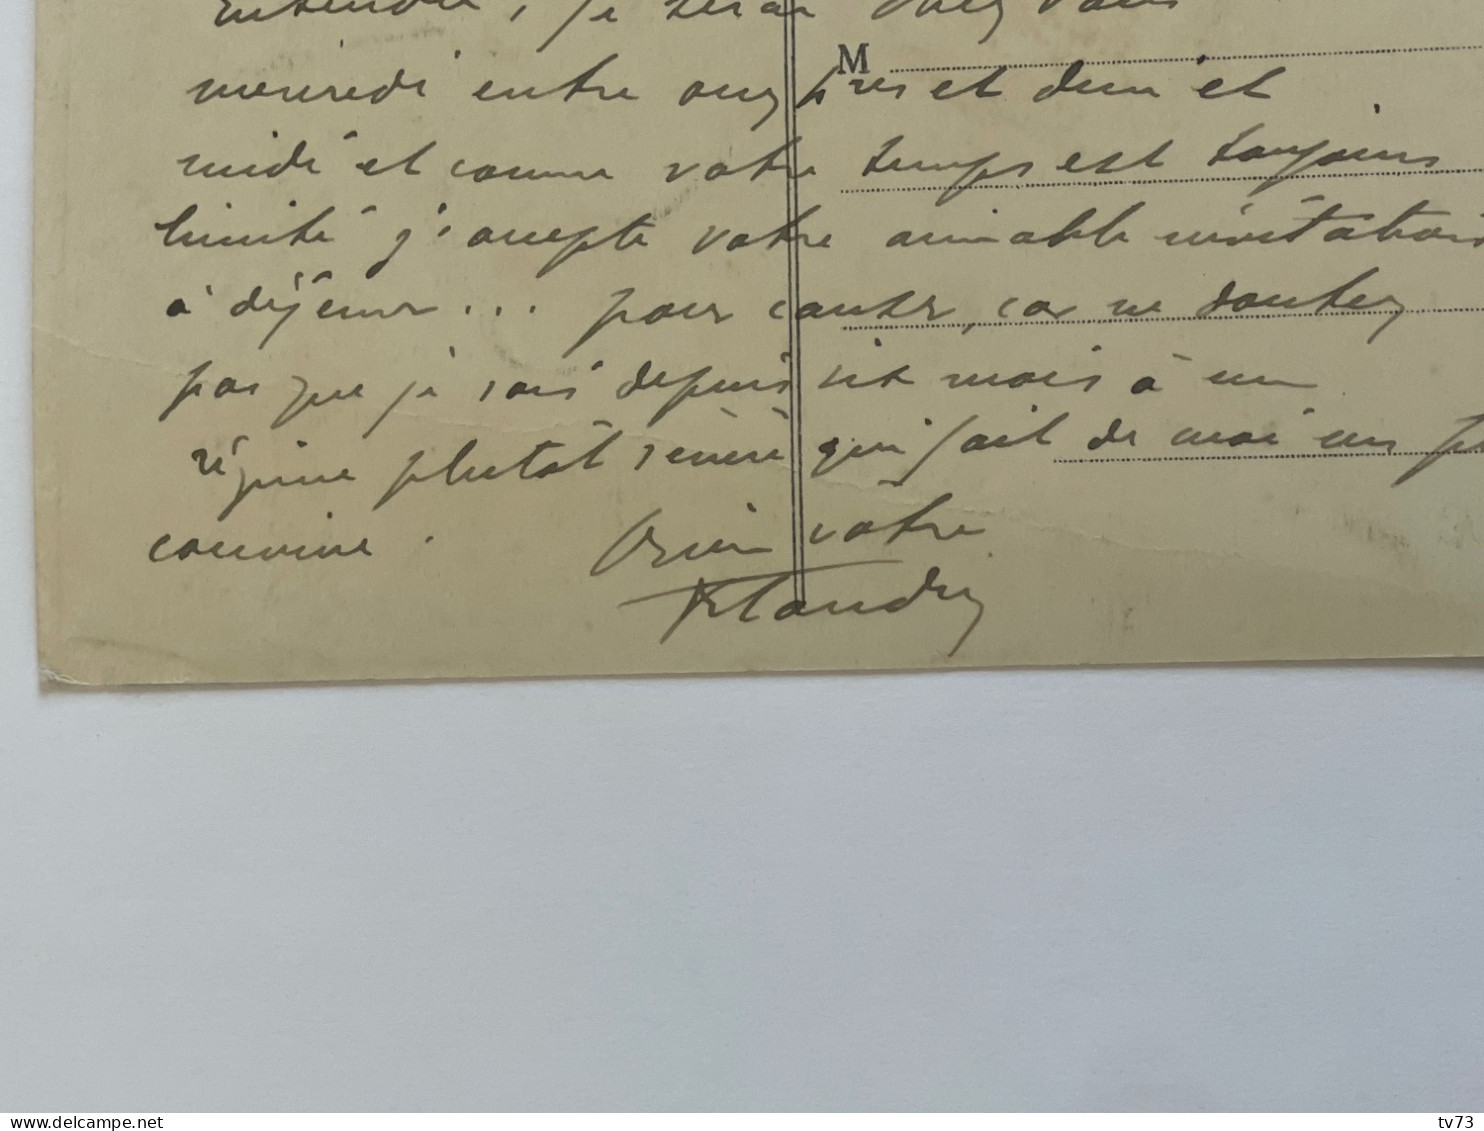 entendu, je serai chez vous
M
mercredi entre onze hres et demi et
midi et comme votre temps est toujours
limité j'accepte votre aimable invitation
à déjeuner... pour causer, car ne doutez
pas que je suis depuis six mois à un
régime plutôt sévère qui fait de moi un
convive.
Bien vôtre
Flandrin
delcampe.net
tv73